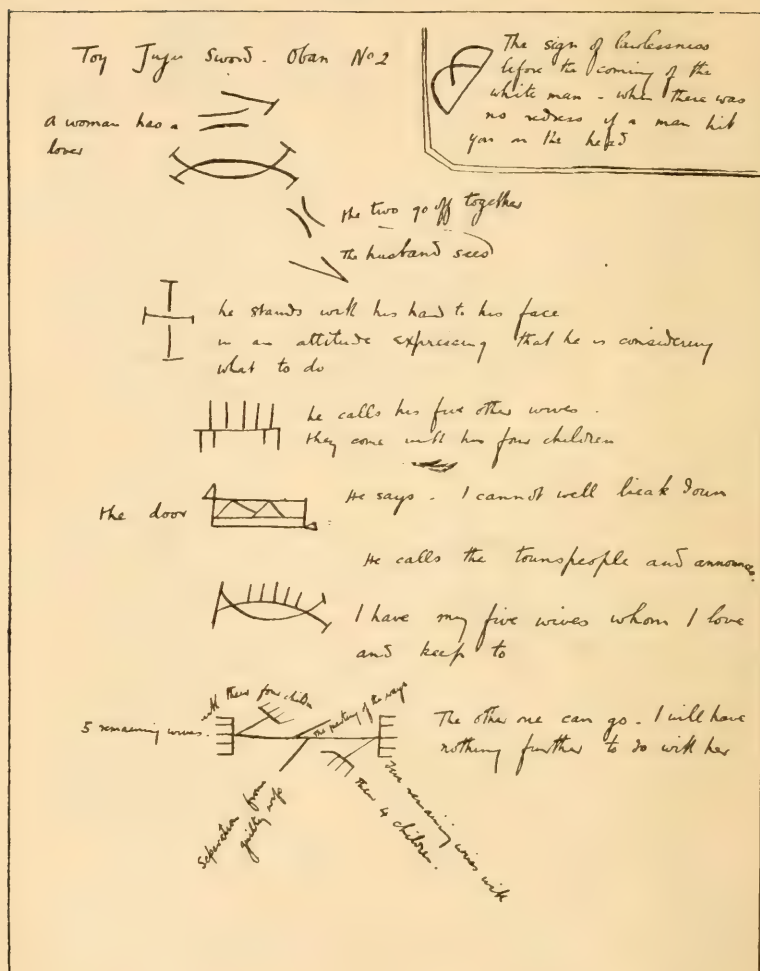 Toy Juju Sword. Oban No 2
The sign of lawlessness
before the coming of the
white man - when there was
no redress if a man hit
you on the head
a woman has a
lover
the two go off together
The husband sees
he stands with his hand to his face
in an attitude expressing that he is considering
what to do
he calls his five other wives.
they come with his four children
He says - I cannot well break down
the door
He calls the townspeople and announces
I have my five wives whom I love
and keep to
with their four children
the parting of the ways
5 remaining wives.
The other one can go. I will have
nothing further to do with her
Separation from
guilty wife
their 4 children.
five remaining wives with